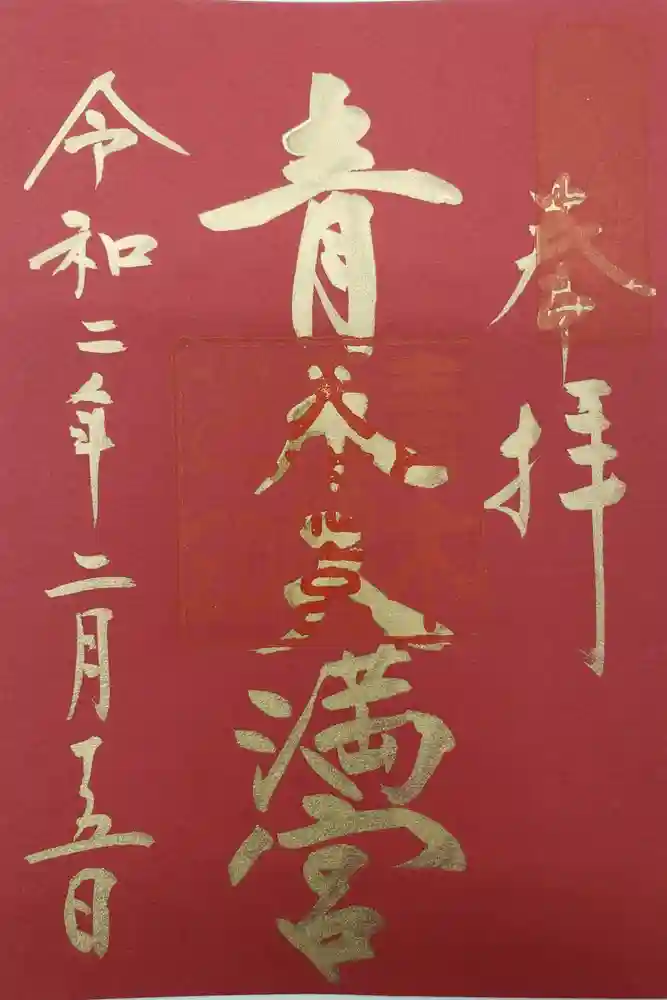 奉拝
青木天満宮
令和二年二月五日